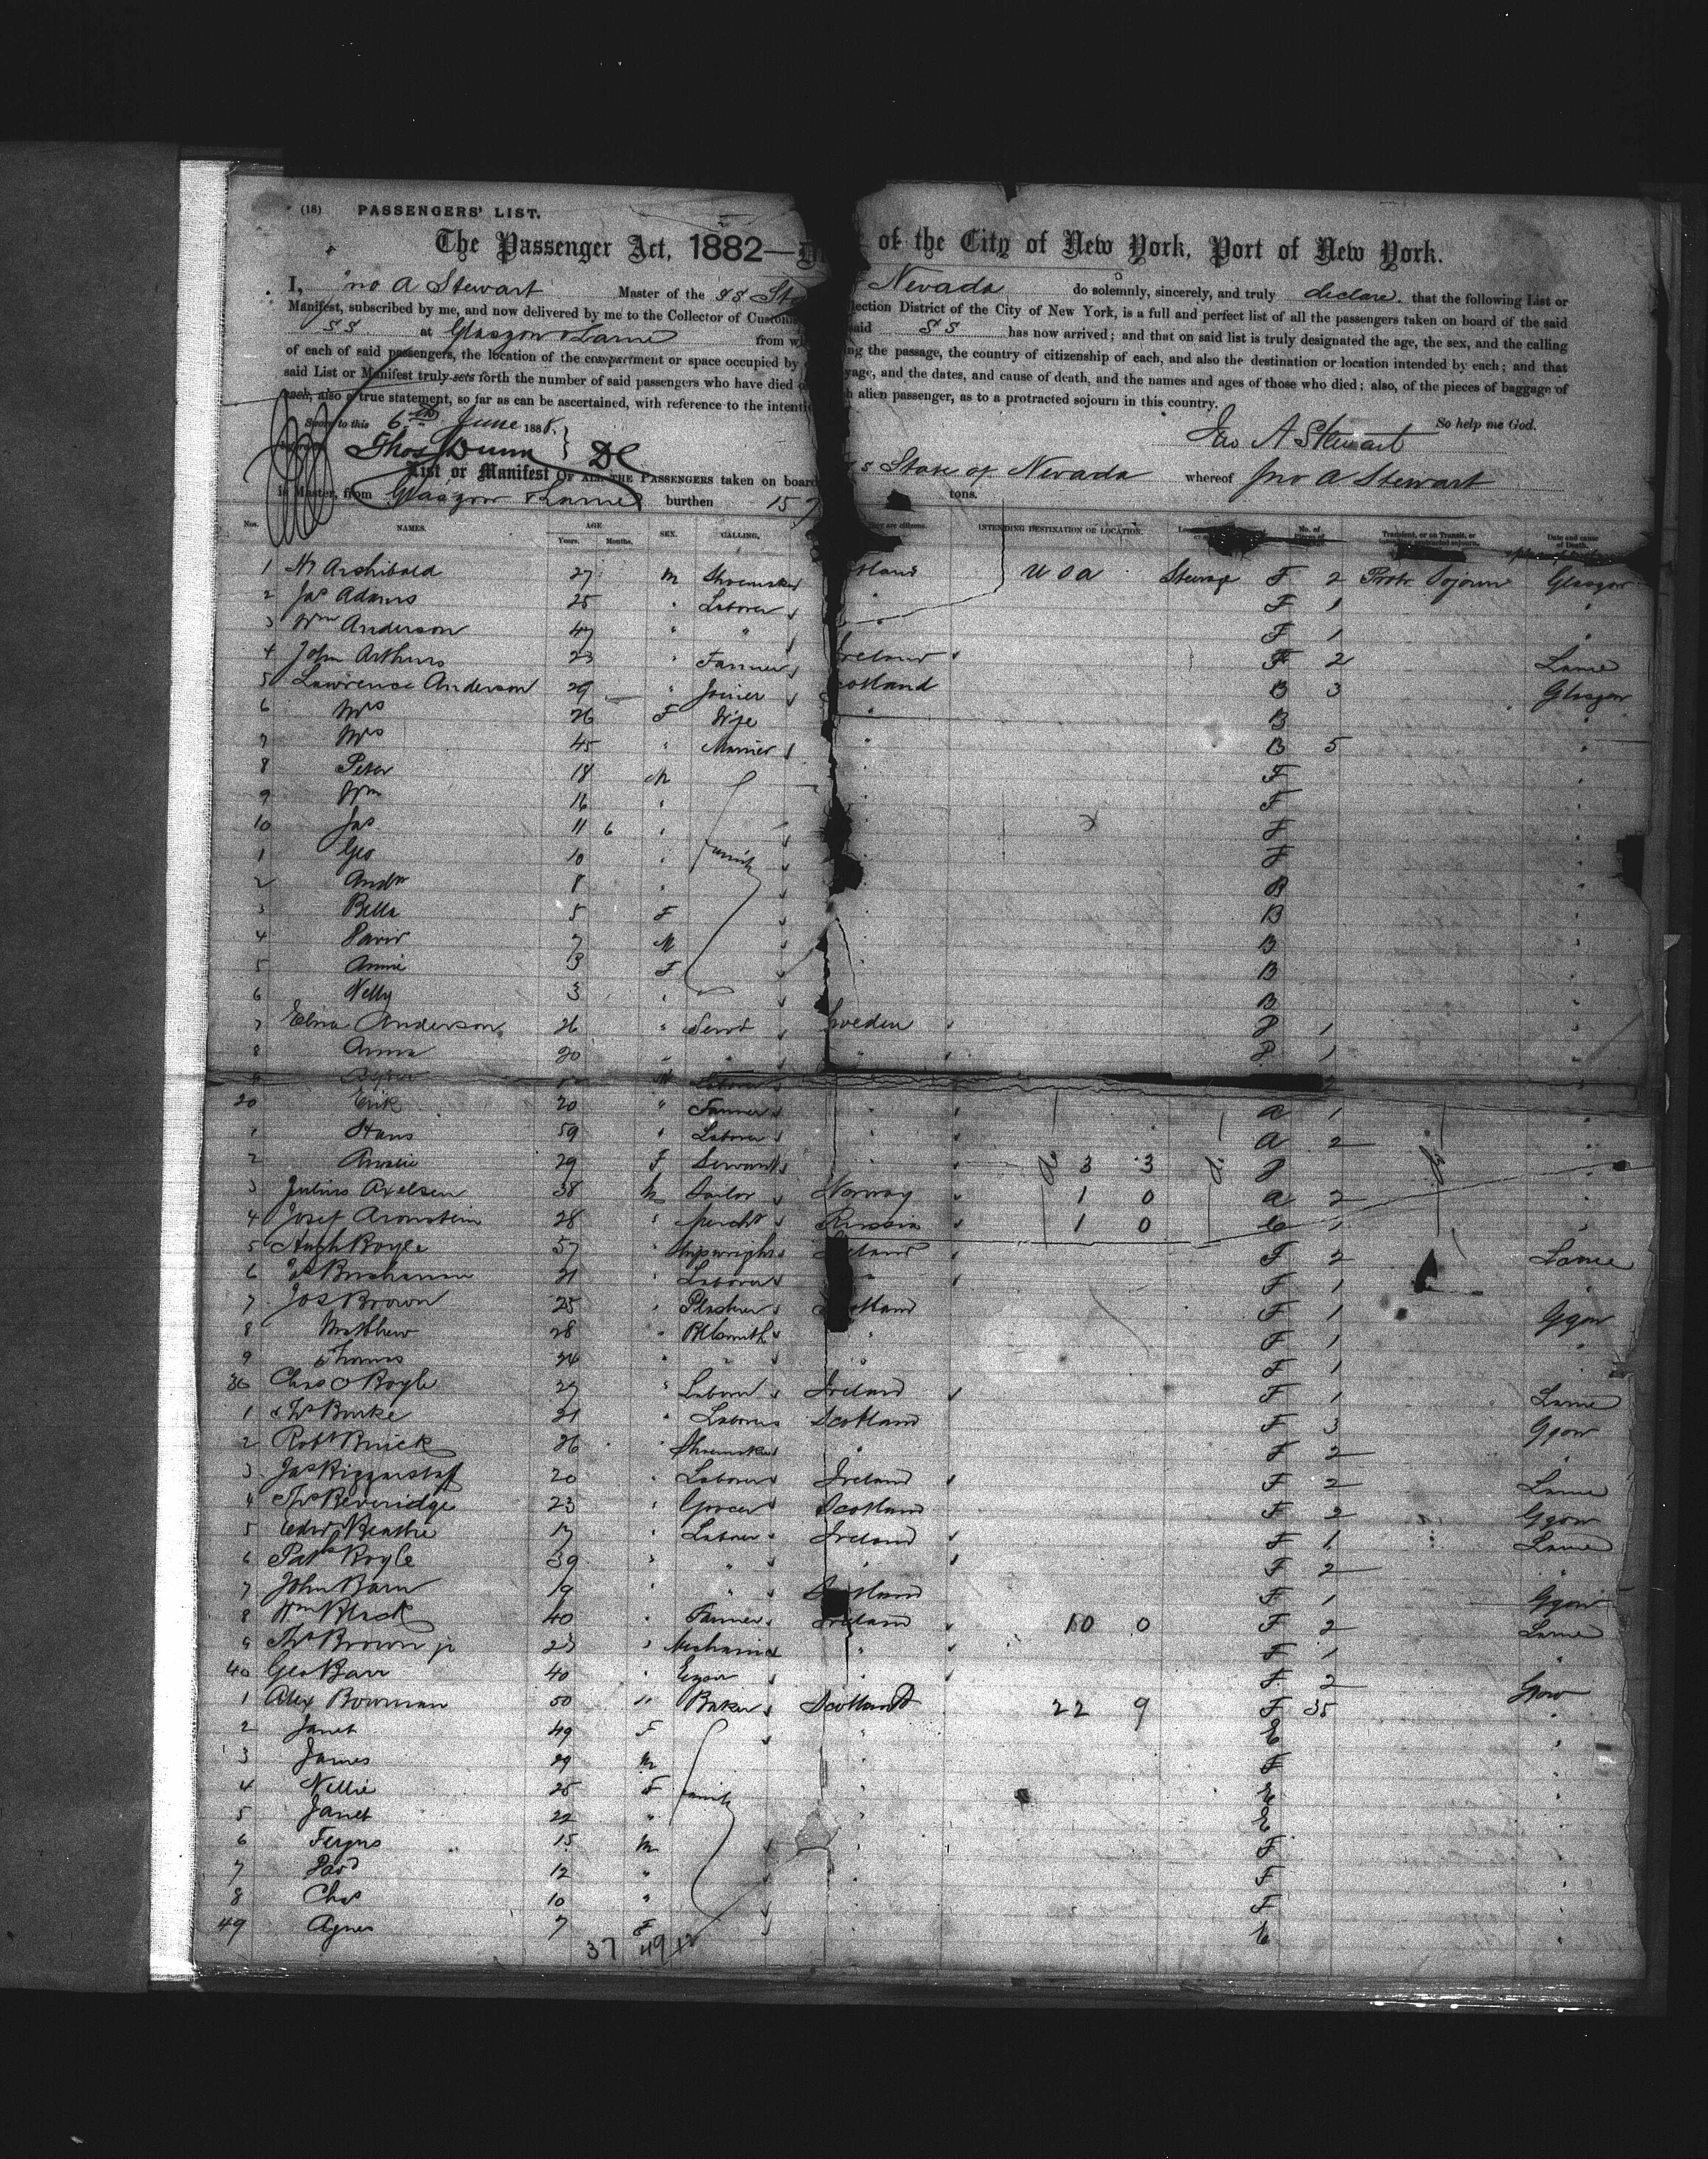 (18) PASSENGERS' LIST.
The Passenger Act, 1882— of the City of New York, Port of New York.
I, no A Stewart Master of the SS Sta Nevada do solemnly, sincerely, and truly declare that the following List or
Manifest, subscribed by me, and now delivered by me to the Collector of Customs llection District of the City of New York, is a full and perfect list of all the passengers taken on board of the said
SS at Glasgow & Larne from wh said SS has now arrived; and that on said list is truly designated the age, the sex, and the calling
of each of said passengers, the location of the compartment or space occupied by ing the passage, the country of citizenship of each, and also the destination or location intended by each; and that
said List or Manifest truly sets forth the number of said passengers who have died o yage, and the dates, and cause of death, and the names and ages of those who died; also, of the pieces of baggage of
each, also a true statement, so far as can be ascertained, with reference to the intenti h alien passenger, as to a protracted sojourn in this country.
Sworn to this 6th June 1888. Jno A Stewart So help me God.
Thos Dunn DC
List or Manifest OF ALL THE PASSENGERS taken on board s State of Nevada whereof Jno A Stewart
is Master, from Glasgow & Larne burthen 157 tons.
Nos. NAMES. AGE Years. Months. SEX. CALLING. they are citizens. INTENDING DESTINATION OR LOCATION. No. of Transient, or on Transit, or Date and cause of Death.
1 Archibald 27 M Shoemaker otland USA Steerage F 2 Protr Sojourn Glasgow
2 Jas Adams 25 " Laborer " F 1 "
3 Wm Anderson 47 " " F 1 "
4 John Arthurs 23 " Farmer Ireland F 2 Larne
5 Lawrence Anderson 29 " Joiner otland B 3 Glasgow
6 Mrs 26 F Wife " B "
7 Mrs 45 " " B 5 "
8 Peter 18 M " F "
9 Wm 16 " " F "
10 Jas 11 6 " " F "
1 Geo 10 " family " F "
2 Andw 8 " " B "
3 Bella 5 F B "
4 7 M B "
5 Annie F B "
6 Nelly 3 " B "
7 Anderson 26 " Servt Sweden 1 "
8 Anna 20 " " " 1 "
M Laborer 2
20 Erik 20 " Farmer " a 1 "
1 Hans 59 " Laborer " a 2 "
2 29 F Servant " 3 3
3 Julius Axelsen 38 M Sailor Norway 1 0 a 2 "
4 Josef Aronstein 28 " Mercht Russia 1 0 1 "
5 Hugh Boyle 57 " Shipwright Ireland F 2 Larne
6 Buchanan 21 " Laborer " F 1 "
7 Jos Brown 25 " Plasterer otland F 1 Ggow
8 Matthew 28 " Blksmith " F 1 "
9 Thomas 24 " " " F 1 "
30 Chas O Boyle 27 " Laborer Ireland F 1 Larne
1 Burke 21 " Laborer Scotland F 3 Ggow
2 Robt Buick 26 " Shoemaker " F 2 "
3 Jas Biggerstaff 20 " Laborer Ireland F 2 Larne
4 Ths Beveridge 23 " Grocer Scotland F 2 Ggow
5 Edwd Beattie 17 " Laborer Ireland F 1 Larne
6 Patk Boyle 39 " " " F 2 "
7 John Barn 19 " " Scotland F 1 Ggow
8 Wm Black 40 " Farmer Ireland 10 0 F 2 Larne
9 Ths Brown jr 23 " Mechanic " F 1 "
40 Geo Barr 40 " " F 2 Ggow
1 Alex Bowman 50 " Baker Scotland 22 9 F 35 "
2 Janet 49 F " E "
3 James 29 M F "
4 Nellie 25 F family " E "
5 Janet 22 " " E "
6 Fergus 15 M F "
7 Davd 12 " " F "
8 Chas 10 " F "
49 Agnes 7 F " E "
37 49